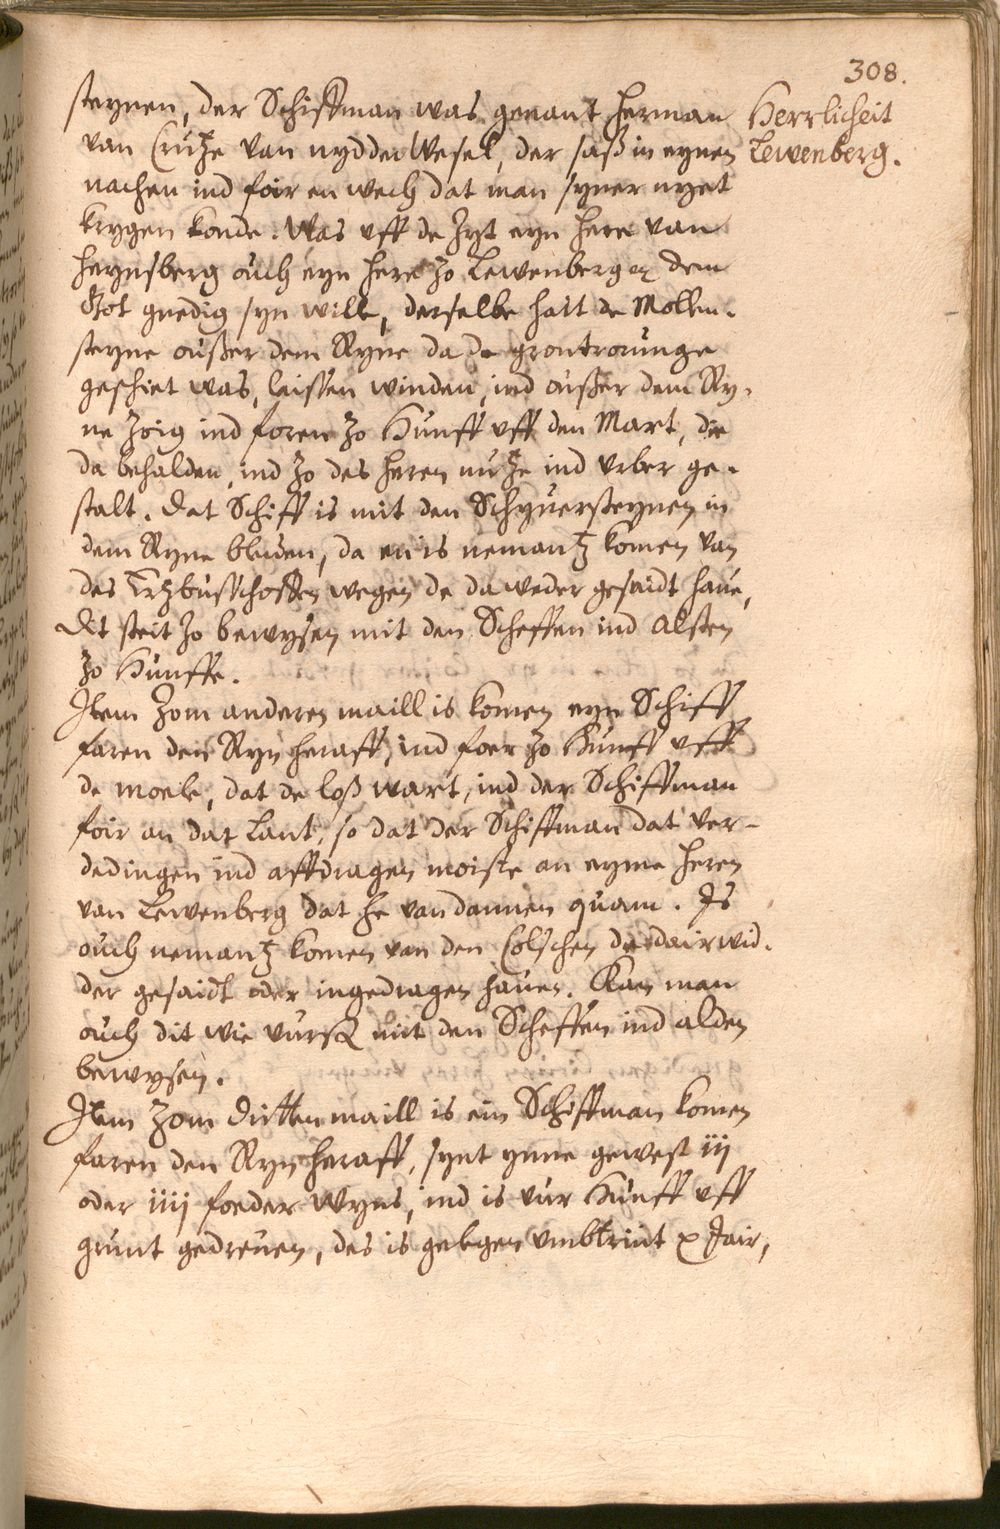 308.
Herrlicheit
Lewenberg.
steynen, der Schiffman was genant Herman
van Crutze van nydder Wesel, der saß in eynen
nachen ind foir en wech dat man syner nyet
krygen konde. Was uff de Zyt eyn Here van
Heynsberg ouch eyn Here zo Lewenberg dem
Got gnedig syn wille, derselbe hatt de Mollen-
steyne oußer dem Ryne da de grontrouwinge
geschiet was, laissen winden, ind oußer dem Ry-
ne zoig ind foren zo Hunff uff den Mart, die
da behalden, ind zo des Heren nutze ind urber ge-
stalt. Dat Schiff is mit den Schyversteynen in
dem Ryne bleuen, da en is nemantz komen van
des Ertzbusschoffen wegen de da weder gesaidt haue,
Dit steit zo bewysen mit den Scheffen ind Alsten
zo Hunffe.
Item zom anderen maill is komen eyn Schiff
faren den Ryn heraff, ind foer zo Hunff uff
de moele, dat de loß wart, ind der Schiffman
foir an dat Lant, so dat der Schiffman dat ver-
dedingen ind affdragen moiste an eyme Heren
van Lewenberg dat he van dannen quam. Is
ouch nemantz komen van den Colschen de dairwid-
der gesaidt oder ingedragen hauen. Kan man
ouch dit wie vursz mit den Scheffen ind alden
bewysen.
Item zom dritten maill is ein Schiffman komen
faren den Ryn heraff, synt ynne gewest iij
oder iiij foeder Wyns, ind is vur Hunff uff
grunt gedreuen, des is gelegen umbtrint x Jair,